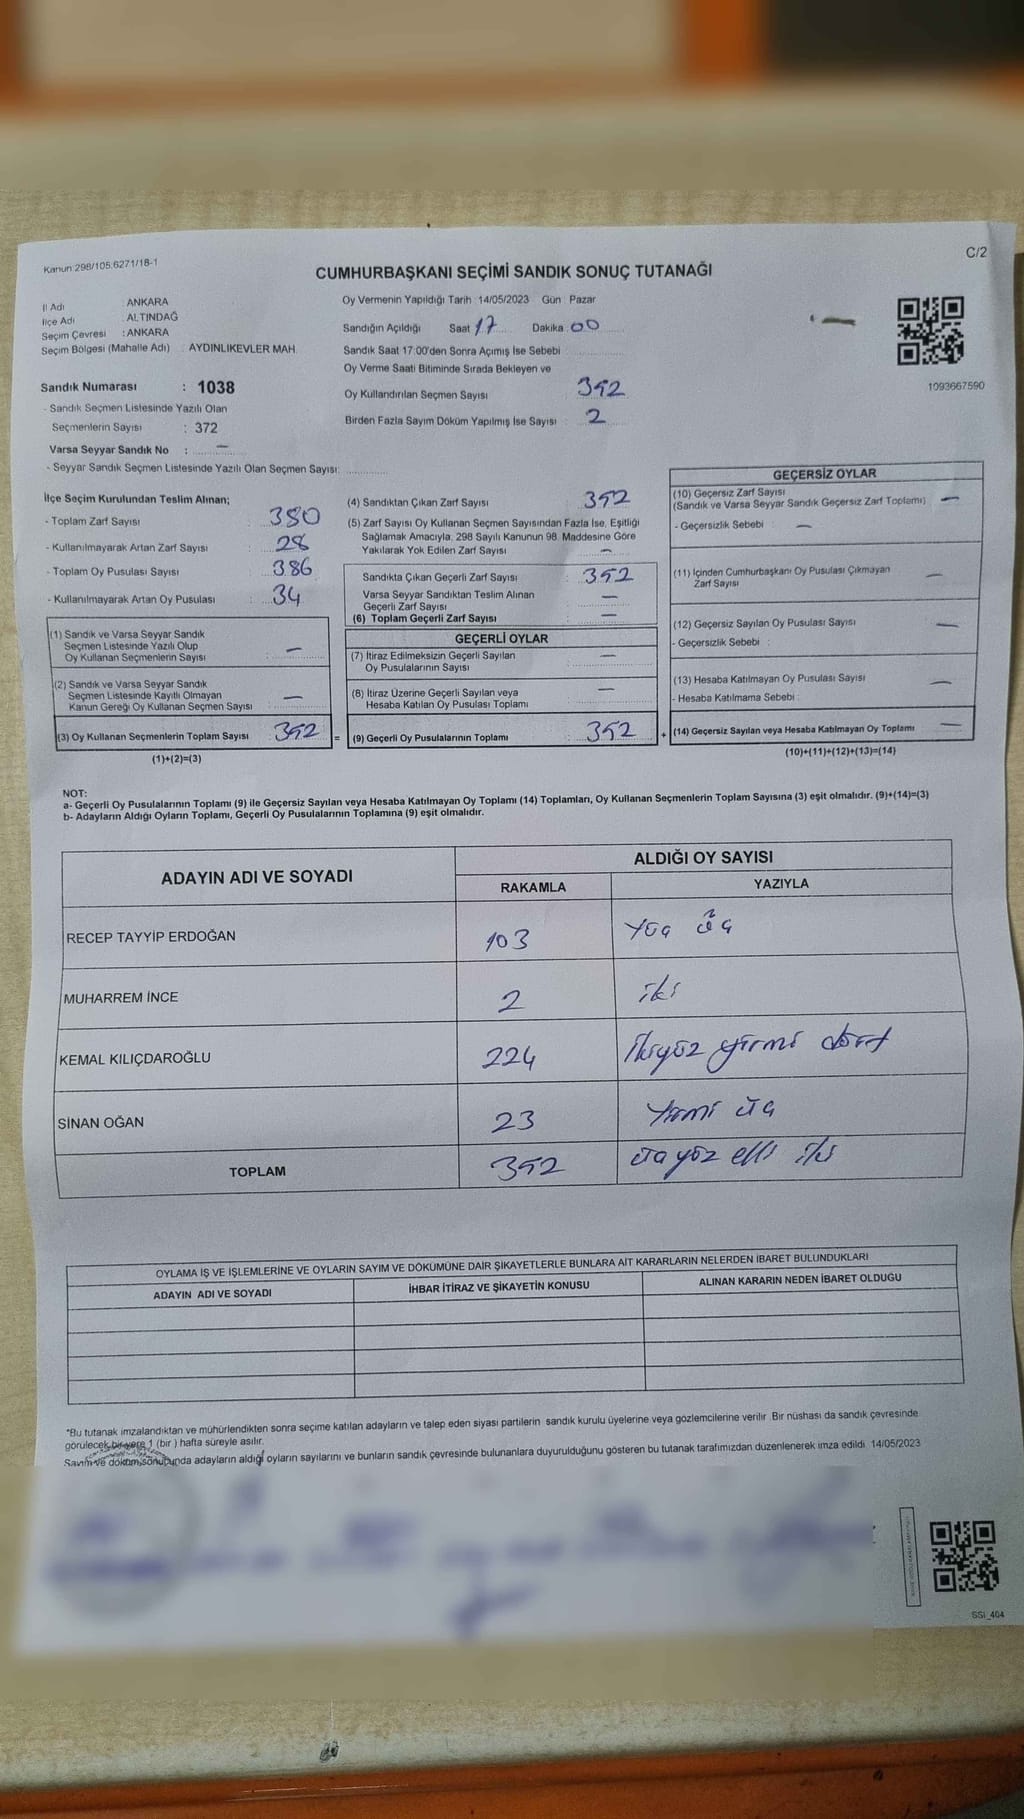 Kanun:298/105,6271/18-1
C/2
CUMHURBAŞKANI SEÇİMİ SANDIK SONUÇ TUTANAĞI
İl Adı : ANKARA
İlçe Adı : ALTINDAĞ
Seçim Çevresi : ANKARA
Seçim Bölgesi (Mahalle Adı) : AYDINLIKEVLER MAH.
Sandık Numarası : 1038
- Sandık Seçmen Listesinde Yazılı Olan
Seçmenlerin Sayısı : 372
Varsa Seyyar Sandık No : —
- Seyyar Sandık Seçmen Listesinde Yazılı Olan Seçmen Sayısı:
Oy Vermenin Yapıldığı Tarih :14/05/2023 Gün : Pazar
Sandığın Açıldığı Saat 17 Dakika 00
Sandık Saat 17:00'den Sonra Açımış İse Sebebi :
Oy Verme Saati Bitiminde Sırada Bekleyen ve
Oy Kullandırılan Seçmen Sayısı : 352
Birden Fazla Sayım Döküm Yapılmış İse Sayısı : 2
1093667590
İlçe Seçim Kurulundan Teslim Alınan;
- Toplam Zarf Sayısı : 380
- Kullanılmayarak Artan Zarf Sayısı : 28
- Toplam Oy Pusulası Sayısı : 386
- Kullanılmayarak Artan Oy Pusulası : 34
(1) Sandık ve Varsa Seyyar Sandık
Seçmen Listesinde Yazılı Olup
Oy Kullanan Seçmenlerin Sayısı : —
(2) Sandık ve Varsa Seyyar Sandık
Seçmen Listesinde Kayıtlı Olmayan
Kanun Gereği Oy Kullanan Seçmen Sayısı : —
(3) Oy Kullanan Seçmenlerin Toplam Sayısı 352 =
(1)+(2)=(3)
(4) Sandıktan Çıkan Zarf Sayısı : 352
(5) Zarf Sayısı Oy Kullanan Seçmen Sayısından Fazla İse, Eşitliği
Sağlamak Amacıyla, 298 Sayılı Kanunun 98. Maddesine Göre
Yakılarak Yok Edilen Zarf Sayısı : —
Sandıkta Çıkan Geçerli Zarf Sayısı : 352
Varsa Seyyar Sandıktan Teslim Alınan
Geçerli Zarf Sayısı : —
(6) Toplam Geçerli Zarf Sayısı : —
GEÇERLİ OYLAR
(7) İtiraz Edilmeksizin Geçerli Sayılan
Oy Pusulalarının Sayısı : —
(8) İtiraz Üzerine Geçerli Sayılan veya
Hesaba Katılan Oy Pusulası Toplamı : —
(9) Geçerli Oy Pusulalarının Toplamı : 352 +
GEÇERSİZ OYLAR
(10) Geçersiz Zarf Sayısı
(Sandık ve Varsa Seyyar Sandık Geçersiz Zarf Toplamı) —
- Geçersizlik Sebebi : —
(11) İçinden Cumhurbaşkanı Oy Pusulası Çıkmayan
Zarf Sayısı —
(12) Geçersiz Sayılan Oy Pusulası Sayısı : —
- Geçersizlik Sebebi :
(13) Hesaba Katılmayan Oy Pusulası Sayısı : —
- Hesaba Katılmama Sebebi :
(14) Geçersiz Sayılan veya Hesaba Katılmayan Oy Toplamı —
(10)+(11)+(12)+(13)=(14)
NOT:
a- Geçerli Oy Pusulalarının Toplamı (9) ile Geçersiz Sayılan veya Hesaba Katılmayan Oy Toplamı (14) Toplamları, Oy Kullanan Seçmenlerin Toplam Sayısına (3) eşit olmalıdır. (9)+(14)=(3)
b- Adayların Aldığı Oyların Toplamı, Geçerli Oy Pusulalarının Toplamına (9) eşit olmalıdır.
ADAYIN ADI VE SOYADI
ALDIĞI OY SAYISI
RAKAMLA YAZIYLA
RECEP TAYYİP ERDOĞAN 103 Yüz üç
MUHARREM İNCE 2 iki
KEMAL KILIÇDAROĞLU 224 İkiyüz yirmi dört
SİNAN OĞAN 23 Yirmi üç
TOPLAM 352 üçyüz elli iki
OYLAMA İŞ VE İŞLEMLERİNE VE OYLARIN SAYIM VE DÖKÜMÜNE DAİR ŞİKAYETLERLE BUNLARA AİT KARARLARIN NELERDEN İBARET BULUNDUKLARI
ADAYIN ADI VE SOYADI İHBAR İTİRAZ VE ŞİKAYETİN KONUSU ALINAN KARARIN NEDEN İBARET OLDUĞU
*Bu tutanak imzalandıktan ve mühürlendikten sonra seçime katılan adayların ve talep eden siyasi partilerin sandık kurulu üyelerine veya gözlemcilerine verilir. Bir nüshası da sandık çevresinde
görülecek bir yere 1 (bir ) hafta süreyle asılır.
Sayım ve döküm sonucunda adayların aldığı oyların sayılarını ve bunların sandık çevresinde bulunanlara duyurulduğunu gösteren bu tutanak tarafımızdan düzenlenerek imza edildi. 14/05/2023
SSI_404